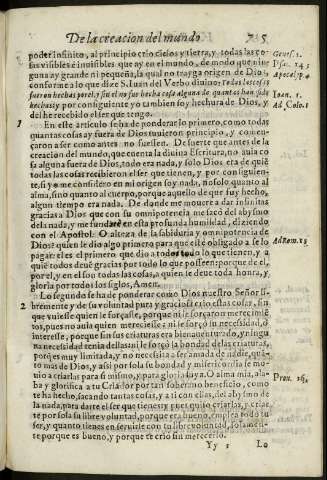 De la creacion del mundo. 7 5
poder infinito, al principio crio cielos y tierra, y todas las co-
sas visibles è inuisibles que ay en el mundo, de modo que nin-
guna ay grande ni pequeña, la qual no trayga origen de Dios
conforme a lo que dize S. Iuan del Verbo diuino: Todas las cosas
fueron hechas por el, y sin el no fue hecha alguna de quantas han sido
hechas: y por consiguiente yo tambien soy hechura de Dios, y
del he recebido el ser que tengo.
1 En este articulo se ha de ponderar lo primero, como todas
quantas cosas ay fuera de Dios tuuieron principio, y comen-
çaron a ser como antes no fuessen. De suerte que antes de la
creacion del mundo, que cuenta la diuina Escritura, no auia co
sa alguna fuera de Dios, todo era nada, y solo Dios era de quiē
todas las cosas recibieron el ser que tienen, y por consiguien-
te, si yo me considero en mi origen soy nada, no solo quanto al
alma, sino quanto al cuerpo, porque aquello de que fuy hecho,
algun tiempo era nada. De donde me mouere a dar infinitas
gracias a Dios que con su omnipotencia me sacò del abysmo
de la nada, y me fundarè en esta profunda humildad, diziendo
con el Apostol: O alteza de la sabiduria y omnipotencia de
Dios: quien le dio algo primero para que estè obligado a se lo
pagar: el es el primero que dio a todos todo lo que tienen, y a
quiē todos deuē gracias por todo lo que posseen: porque de el,
por el, y en el son todas las cosas, a quien se deue toda honra, y
gloria por todos los siglos, Amen.
Lo segundo se ha de ponderar como Dios nuestro Señor li-
2 bremente y de su voluntad pura y graciosa crio ellas cosas, sin
que vuiesse quien le forçasse, porque ni le forçaron merecimiē
tos, pues no auia quien mereciesse: ni le forçò su necessidad, o
interesse, porque sin sus criaturas era bienauenturado, y ningu
na necessidad tenia dellas: ni le forçò la bondad de las criaturas,
porque es muy limitada, y no necessita a ser amada de nadie, quā-
to mas de Dios, y assi por sola su bondad y misericordia se mo-
uio a criarlas para si mismo, y para gloria suya. O alma mia, ala-
ba y glorifica a tu Criador por tan soberano beneficio, como
te ha hecho, sacando tantas cosas, y a ti con ellas, del abysmo de
la nada, para darte el ser que tienes: y pues quiso criarlas, y criar
te por sola su libre voluntad, porque era bueno, emplea todo tu
ser, y quanto tienes en seruirle con tu libre voluntad, solamen-
te porque es bueno, y porque te crio sin merecerlo.
Yy 5 Lo
Genes. 1.
Psa. 145
Apocal. 4
Ioan. 1.
Ad Colo. 1
Ad Rom. 11
Prou. 16.